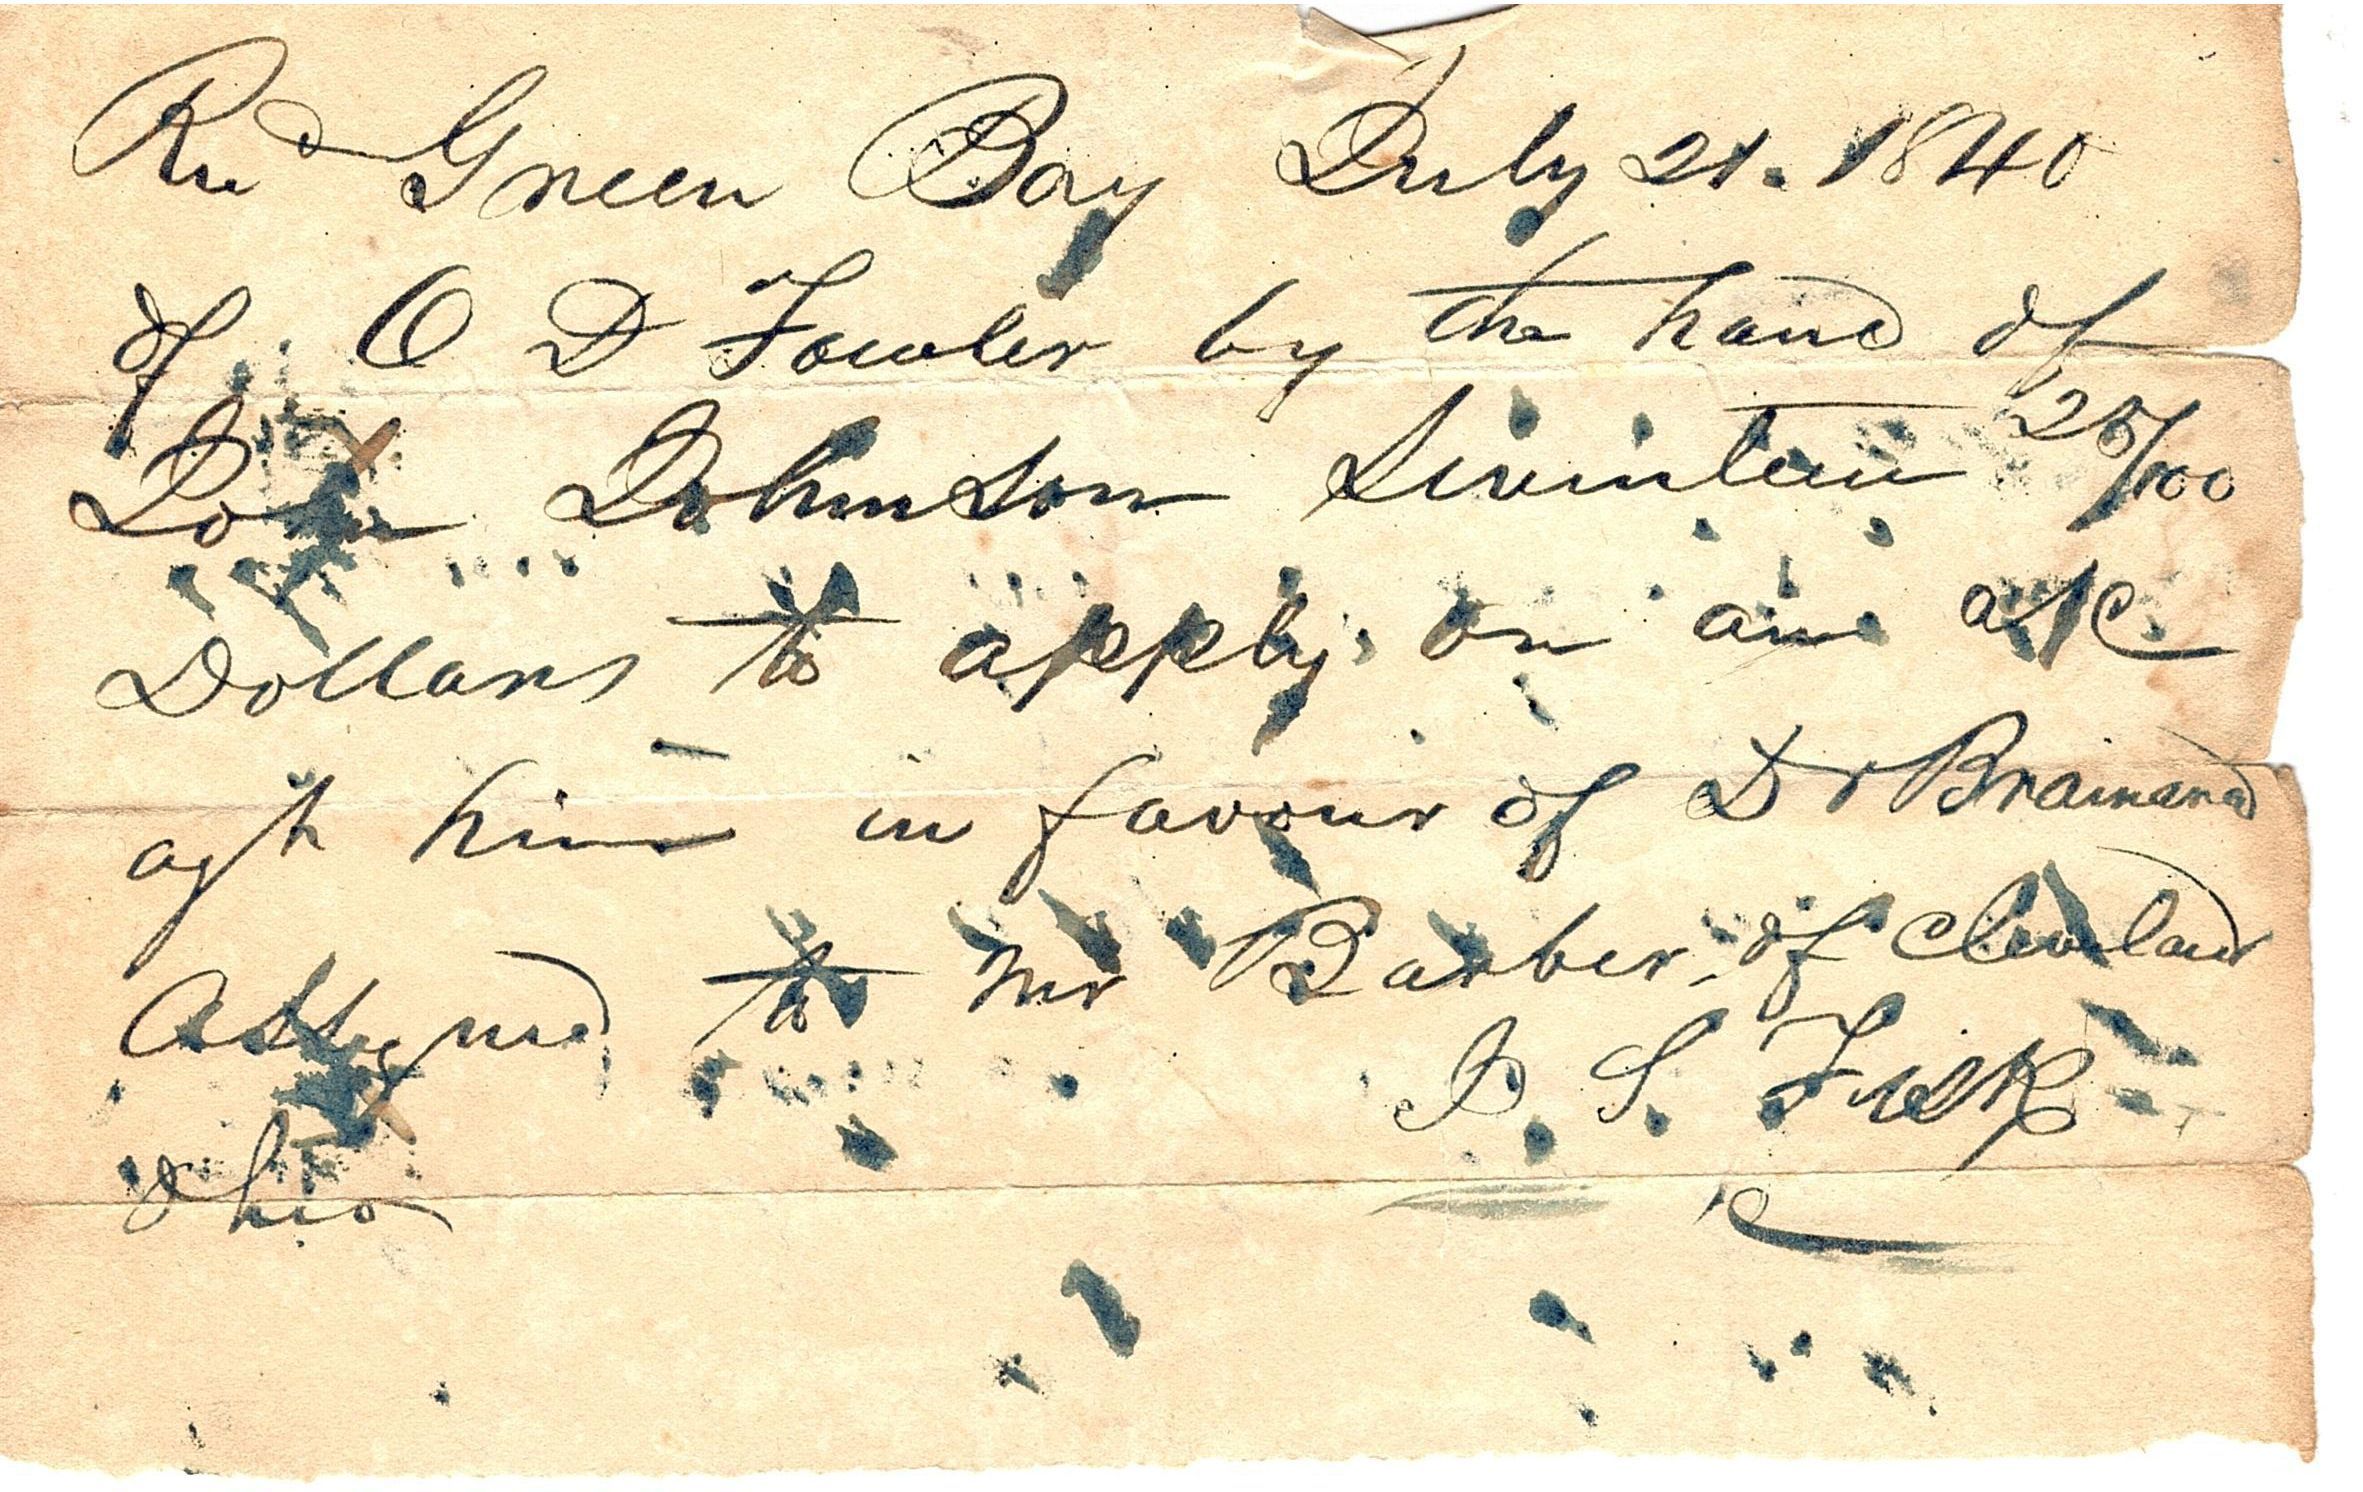 Recd Green Bay July 21. 1840
of O D Fowler by the hand of
John Johnson Seventeen 25/100
Dollars to apply on an a/c
agt him in favour of Dr Brainard
Assigned to Mr Barber of Cleveland
J S Fisk
Ohio